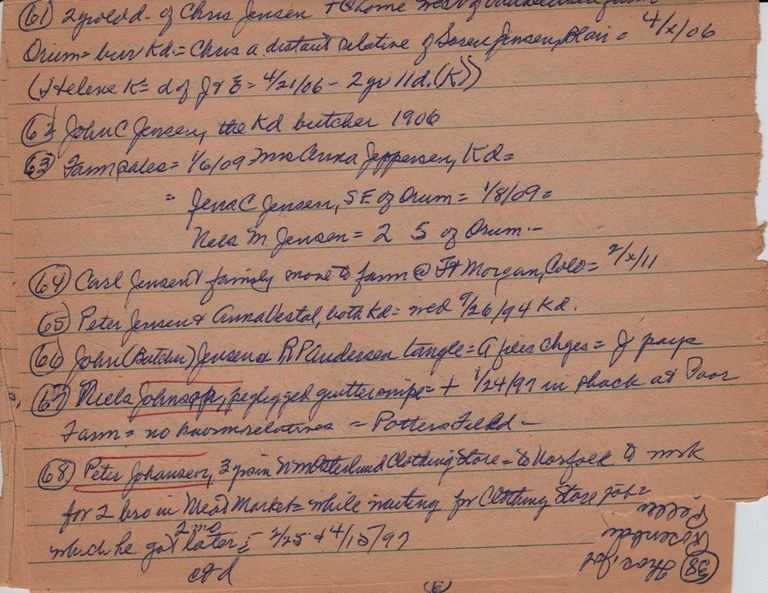 (61) 2 yr old d. of Chris Jensen + @ home West of
Orum = bur Kd = Chris a distant relative of Soren Jensen, Blair = 4/x/06
(Helene K = d of J & E = 4/21/06 - 2 yr 11 d. (K))
(62) John C Jensen, the Kd butcher 1906
(63) Farm sales = 1/6/09 Mrs Anna Jeppersen, Kd =
= Jens C Jensen, SE of Orum = 1/8/09 =
Nels M Jensen = 2 S of Orum -
(64) Carl Jensen & family move to farm @ Ft Morgan, Colo = 2/x/11
(65) Peter Jensen & Anna Vestal, both Kd = wed 9/26/94 Kd.
(66) John (Butcher) Jensen & R P Andersen tangle = A files chges = J pays
(67) Niels Johnson, peglegged = + 1/24/97 in shack at Poor
Farm = no known relatives = Potters Field -
(68) Peter Johansen, 3 join Clothing Store = to Norfolk to work
for 2 bro in Meat Market = while waiting for Clothing Store job =
which he got 2 mo later = 2/25 & 4/15/97
ctd
(38)